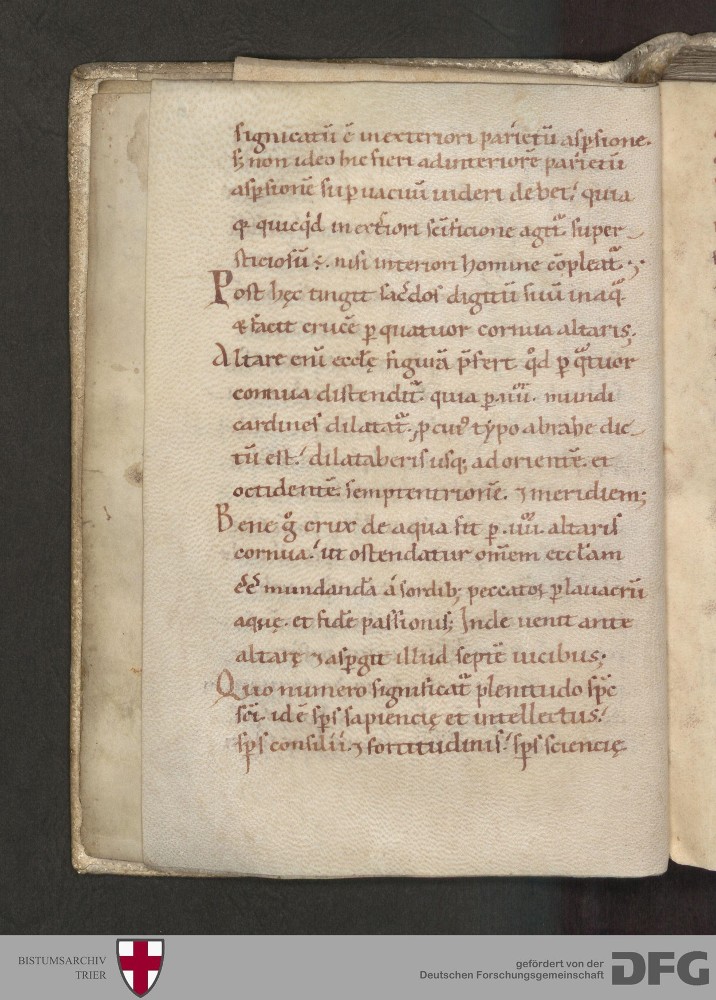 signicatū ē in exteriori parietū aspsione.
s; non ideo hic fieri ad interiorē parietū
aspsionē supuacuū uideri debet; quia
qr quicq̇d in extiori scīficione agit̃ super-
sticiosū ē. nisi interiori homine cōpleat̃.;
Post hęc tingit sac̄dos digitū suū in aq̃
& facit crucē p quatuor cornua altaris;
Altare enī eccłę figurā p̄fert. qd̊ p q̃tuor
cornua distendit̃. quia p .iiii. mundi
cardines dilatat̃. p cui᾽ typo abrahę dic-
tū est; dilataberis usq; ad orientē. et
occidentē. semptentrionē. ⁊ meridiem;
Bene g̊ crux de aqua fit p .iiii. altaris
cornua; ut ostendatur om̄em ecclam
eē mundandā á sordib; peccatoꝝ p lauacrū
aquę. et fidē passionis; Inde uenit ante
altarę ⁊ aspgit illud septē uicibus;
Quo numero significat̃ plenitudo sp̄c
sc̄i. id ē sp̄s sapiencię et intellectus;
sp̄s consilii. ⁊ fortitudinis; sp̄s sciencię
BISTUMSARCHIV
TRIER
gefördert von der
Deutschen Forschungsgemeinschaft
DFG